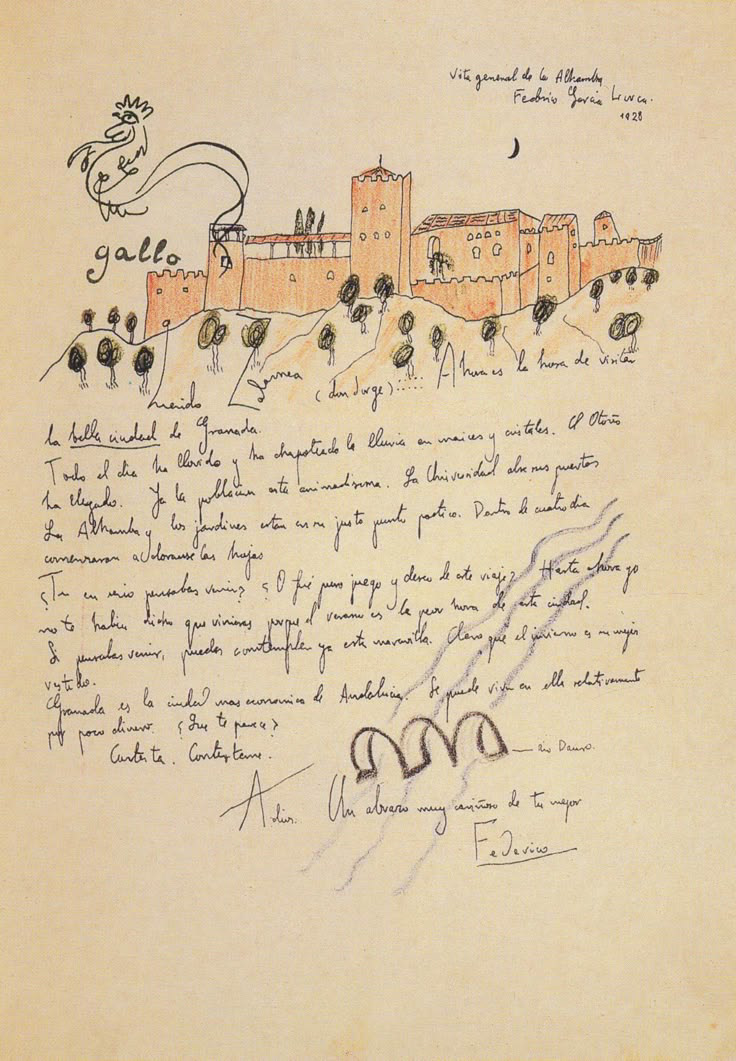 Vista general de la Alhambra
Federico García Lorca.
1928
gallo
Querido Zalamea (don Jorge): Ahora es la hora de visitar
la bella ciudad de Granada.
Todo el dia ha llovido y ha chapoteado la lluvia en maices y cristales. El Otoño
ha llegado. Ya la poblacion esta animadisima. La Universidad abre sus puertas
La Alhambra y los jardines estan en su justo punto poetico. Dentro de cuatro dias
comenzaran a dorarse las hojas
¿Tu en serio pensabas venir? ¿O fué puro juego y deseo de este viaje? Hasta ahora yo
no te habia dicho que vinieras porque el verano es la peor hora de esta ciudad.
Si pensabas venir, puedes contemplar ya esta maravilla. Claro que el invierno es su mejor
vestido.
Granada es la ciudad mas economica de Andalucia. Se puede vivir en ella relativamente
por poco dinero. ¿Que te parece?
Contesta. Contestame.
rio Dauro.
Adios. Un abrazo muy cariñoso de tu mejor
Federico